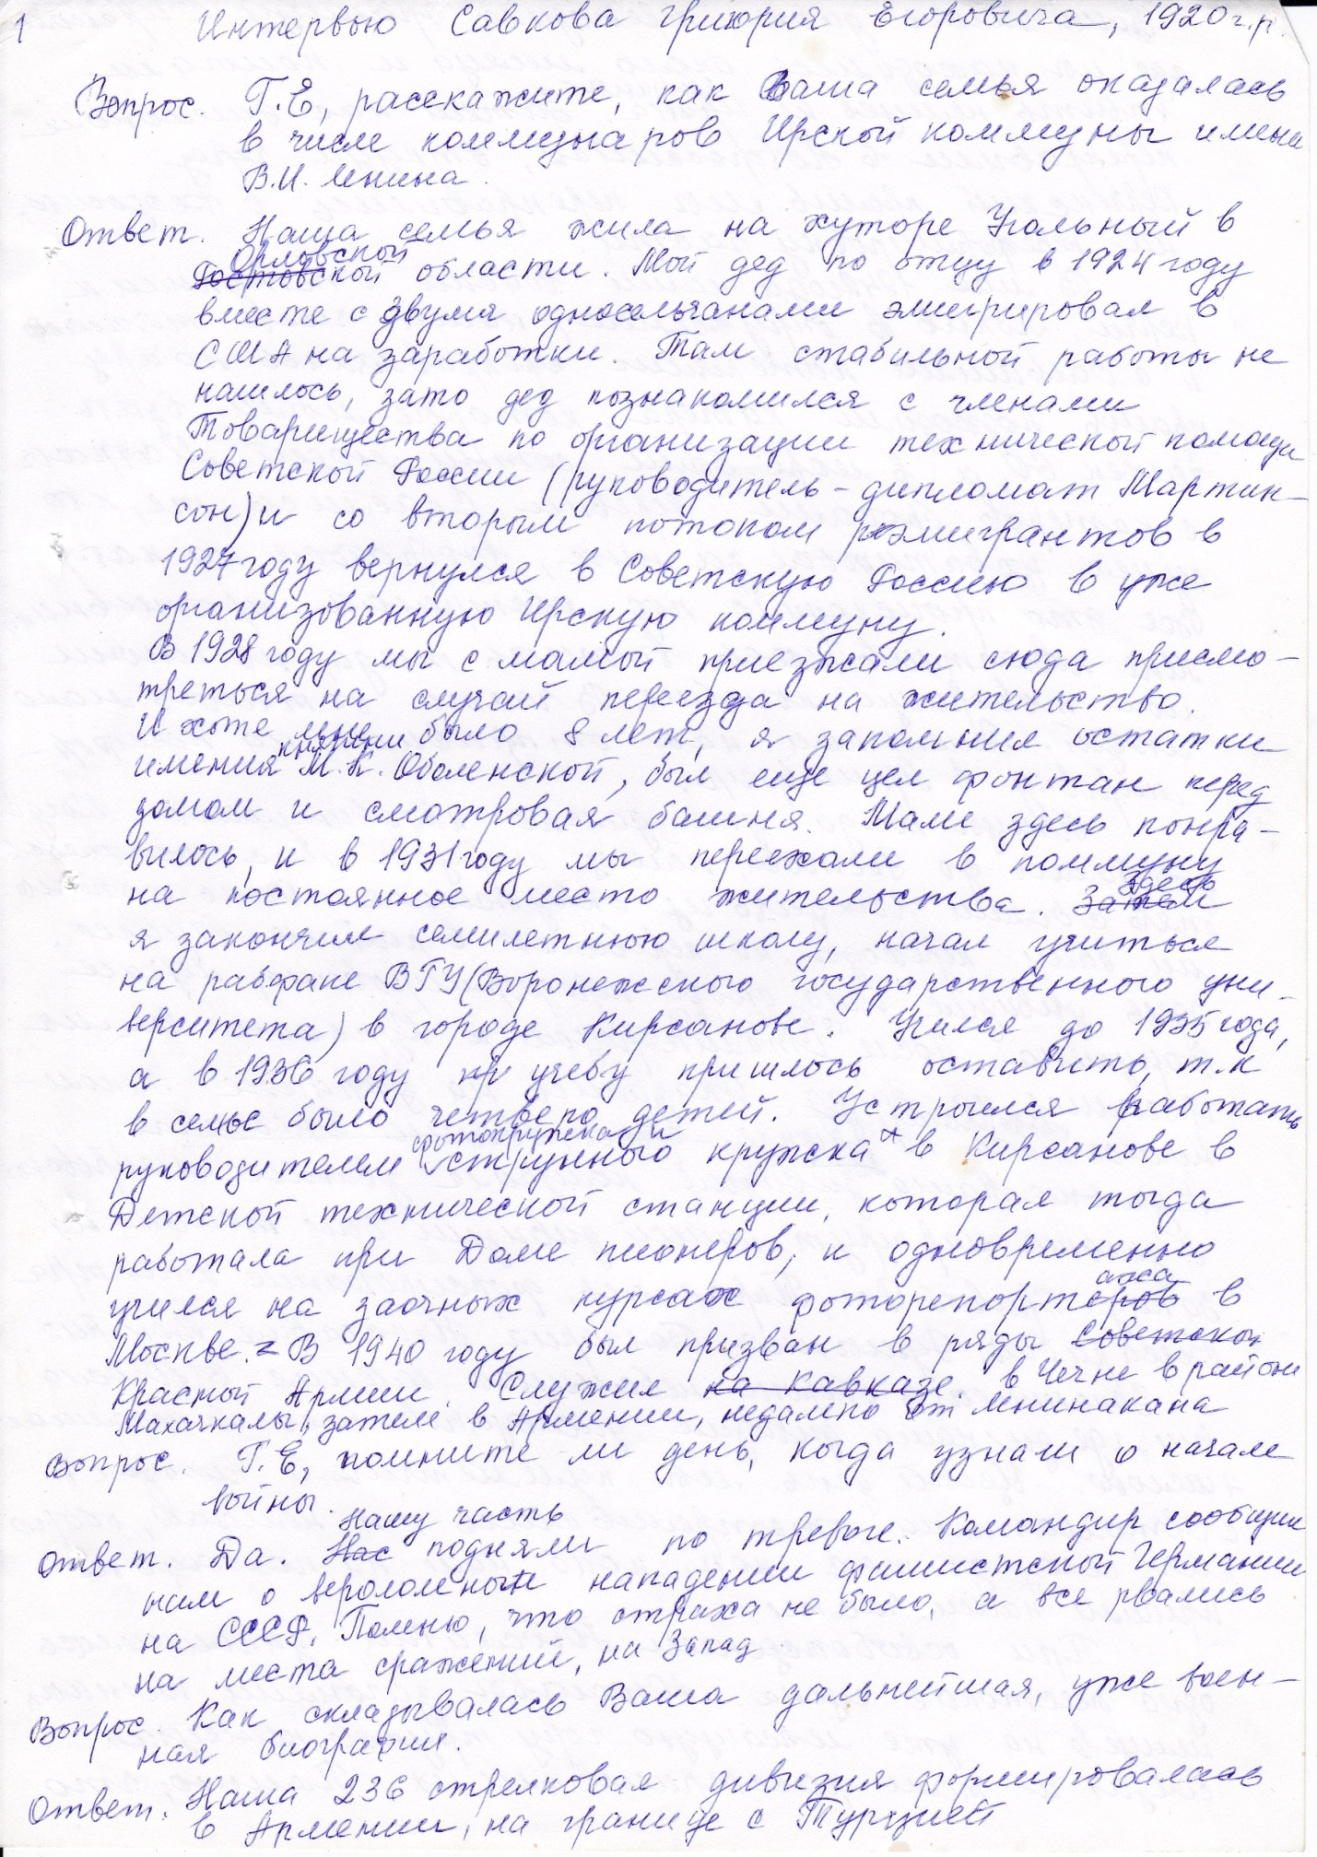 1
Интервью Савкова Григория Егоровича, 1920 г.р.
Вопрос. Г.Е, расскажите, как Ваша семья оказалась
в числе коммунаров Ирской коммуны имени
В.И. Ленина.
Ответ. Наша семья жила на хуторе Угольный в
Орловской
Ростовской области. Мой дед по отцу в 1924 году
вместе с двумя односельчанами эмигрировал в
США на заработки. Там стабильной работы не
нашлось, зато дед познакомился с членами
Товарищества по организации технической помощи
Советской России (руководитель – дипломат Мартин-
сон) и со вторым потоком реэмигрантов в
1927 году вернулся в Советскую Россию в уже
организованную Ирскую коммуну.
В 1928 году мы с мамой приезжали сюда присмо-
треться на случай переезда на жительство.
И хоте мне было 8 лет, я запомнил остатки
княгини
имения М.К. Оболенской, был еще цел фонтан перед
домом и смотровая башня. Маме здесь понра-
вилось, и в 1931 году мы переехали в коммуну
здесь
на постоянное место жительства. Затем
я закончил семилетнюю школу, начал учиться
на рабфаке ВГУ (Воронежского государственного уни-
верситета) в городе Кирсанове. Учился до 1935 года,
а в 1936 году учебу пришлось оставить, т.к
в семье было четверо детей. Устроился работать
фотокружка и
руководителем струнного кружка в Кирсанове в
Детской технической станции, которая тогда
работала при Доме пионеров, и одновременно
учился на заочных курсах фоторепортеров в
Москве. В 1940 году был призван в ряды Советской
Красной Армии. Служил на Кавказе. в Чечне в районе
Махачкалы, затем в Армении, недалеко от Ленинакана
Вопрос. Г.Е, помните ли день, когда узнали о начале
войны.
Нашу часть
Ответ. Да. Нас подняли по тревоге. Командир сообщил
нам о вероломном нападении фашистской Германии
на СССР. Помню, что страха не было, а все рвались
на места сражений, на Запад.
Вопрос. Как складывалась Ваша дальнейшая, уже воен-
ная биография.
Ответ. Наша 236 стрелковая дивизия формировалась
в Армении, на границе с Турцией